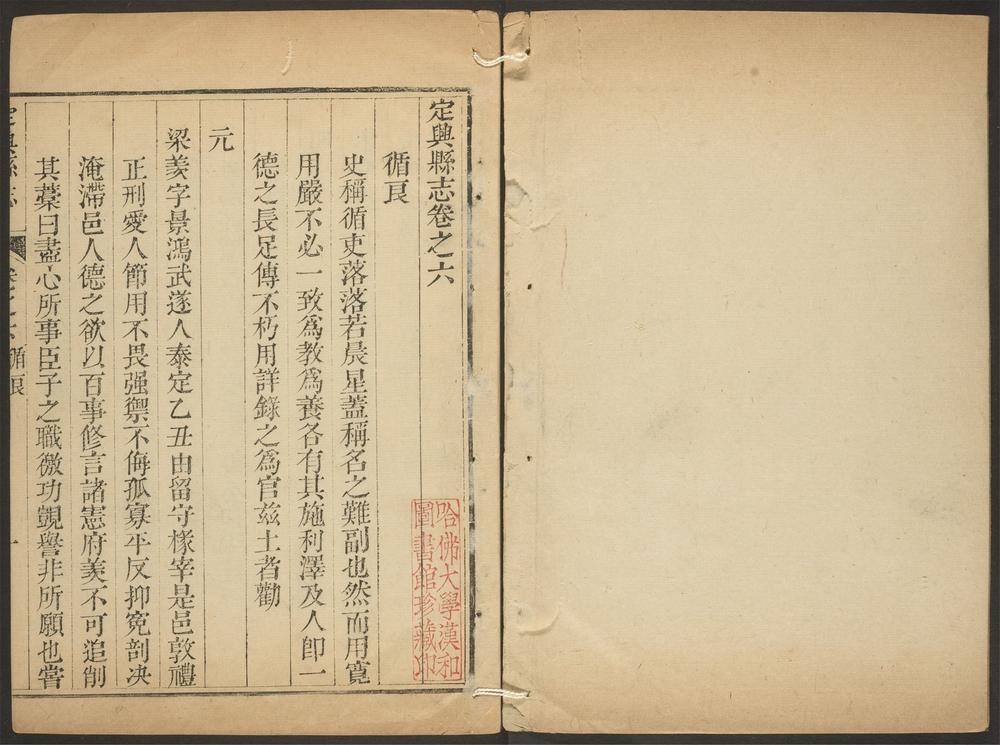 定興縣志卷之六
循良
史稱循吏落落若晨星蓋稱名之難副也然而用寬
用嚴不必一致爲教爲養各有其施利澤及人卽一
德之長足傳不朽用詳錄之爲官茲土者勸
元
梁羙字景鴻武遂人泰定乙丑由留守椽宰是邑敦禮
正刑愛人節用不畏强禦不侮孤寡平反抑冤剖决
淹滯邑人德之欲以百事修言諸憲府羙不可追削
其藁曰盡心所事臣子之職徼功覬譽非所願也嘗
定興縣志
卷之六循良
一
哈佛大學漢和
圖書館珍藏印